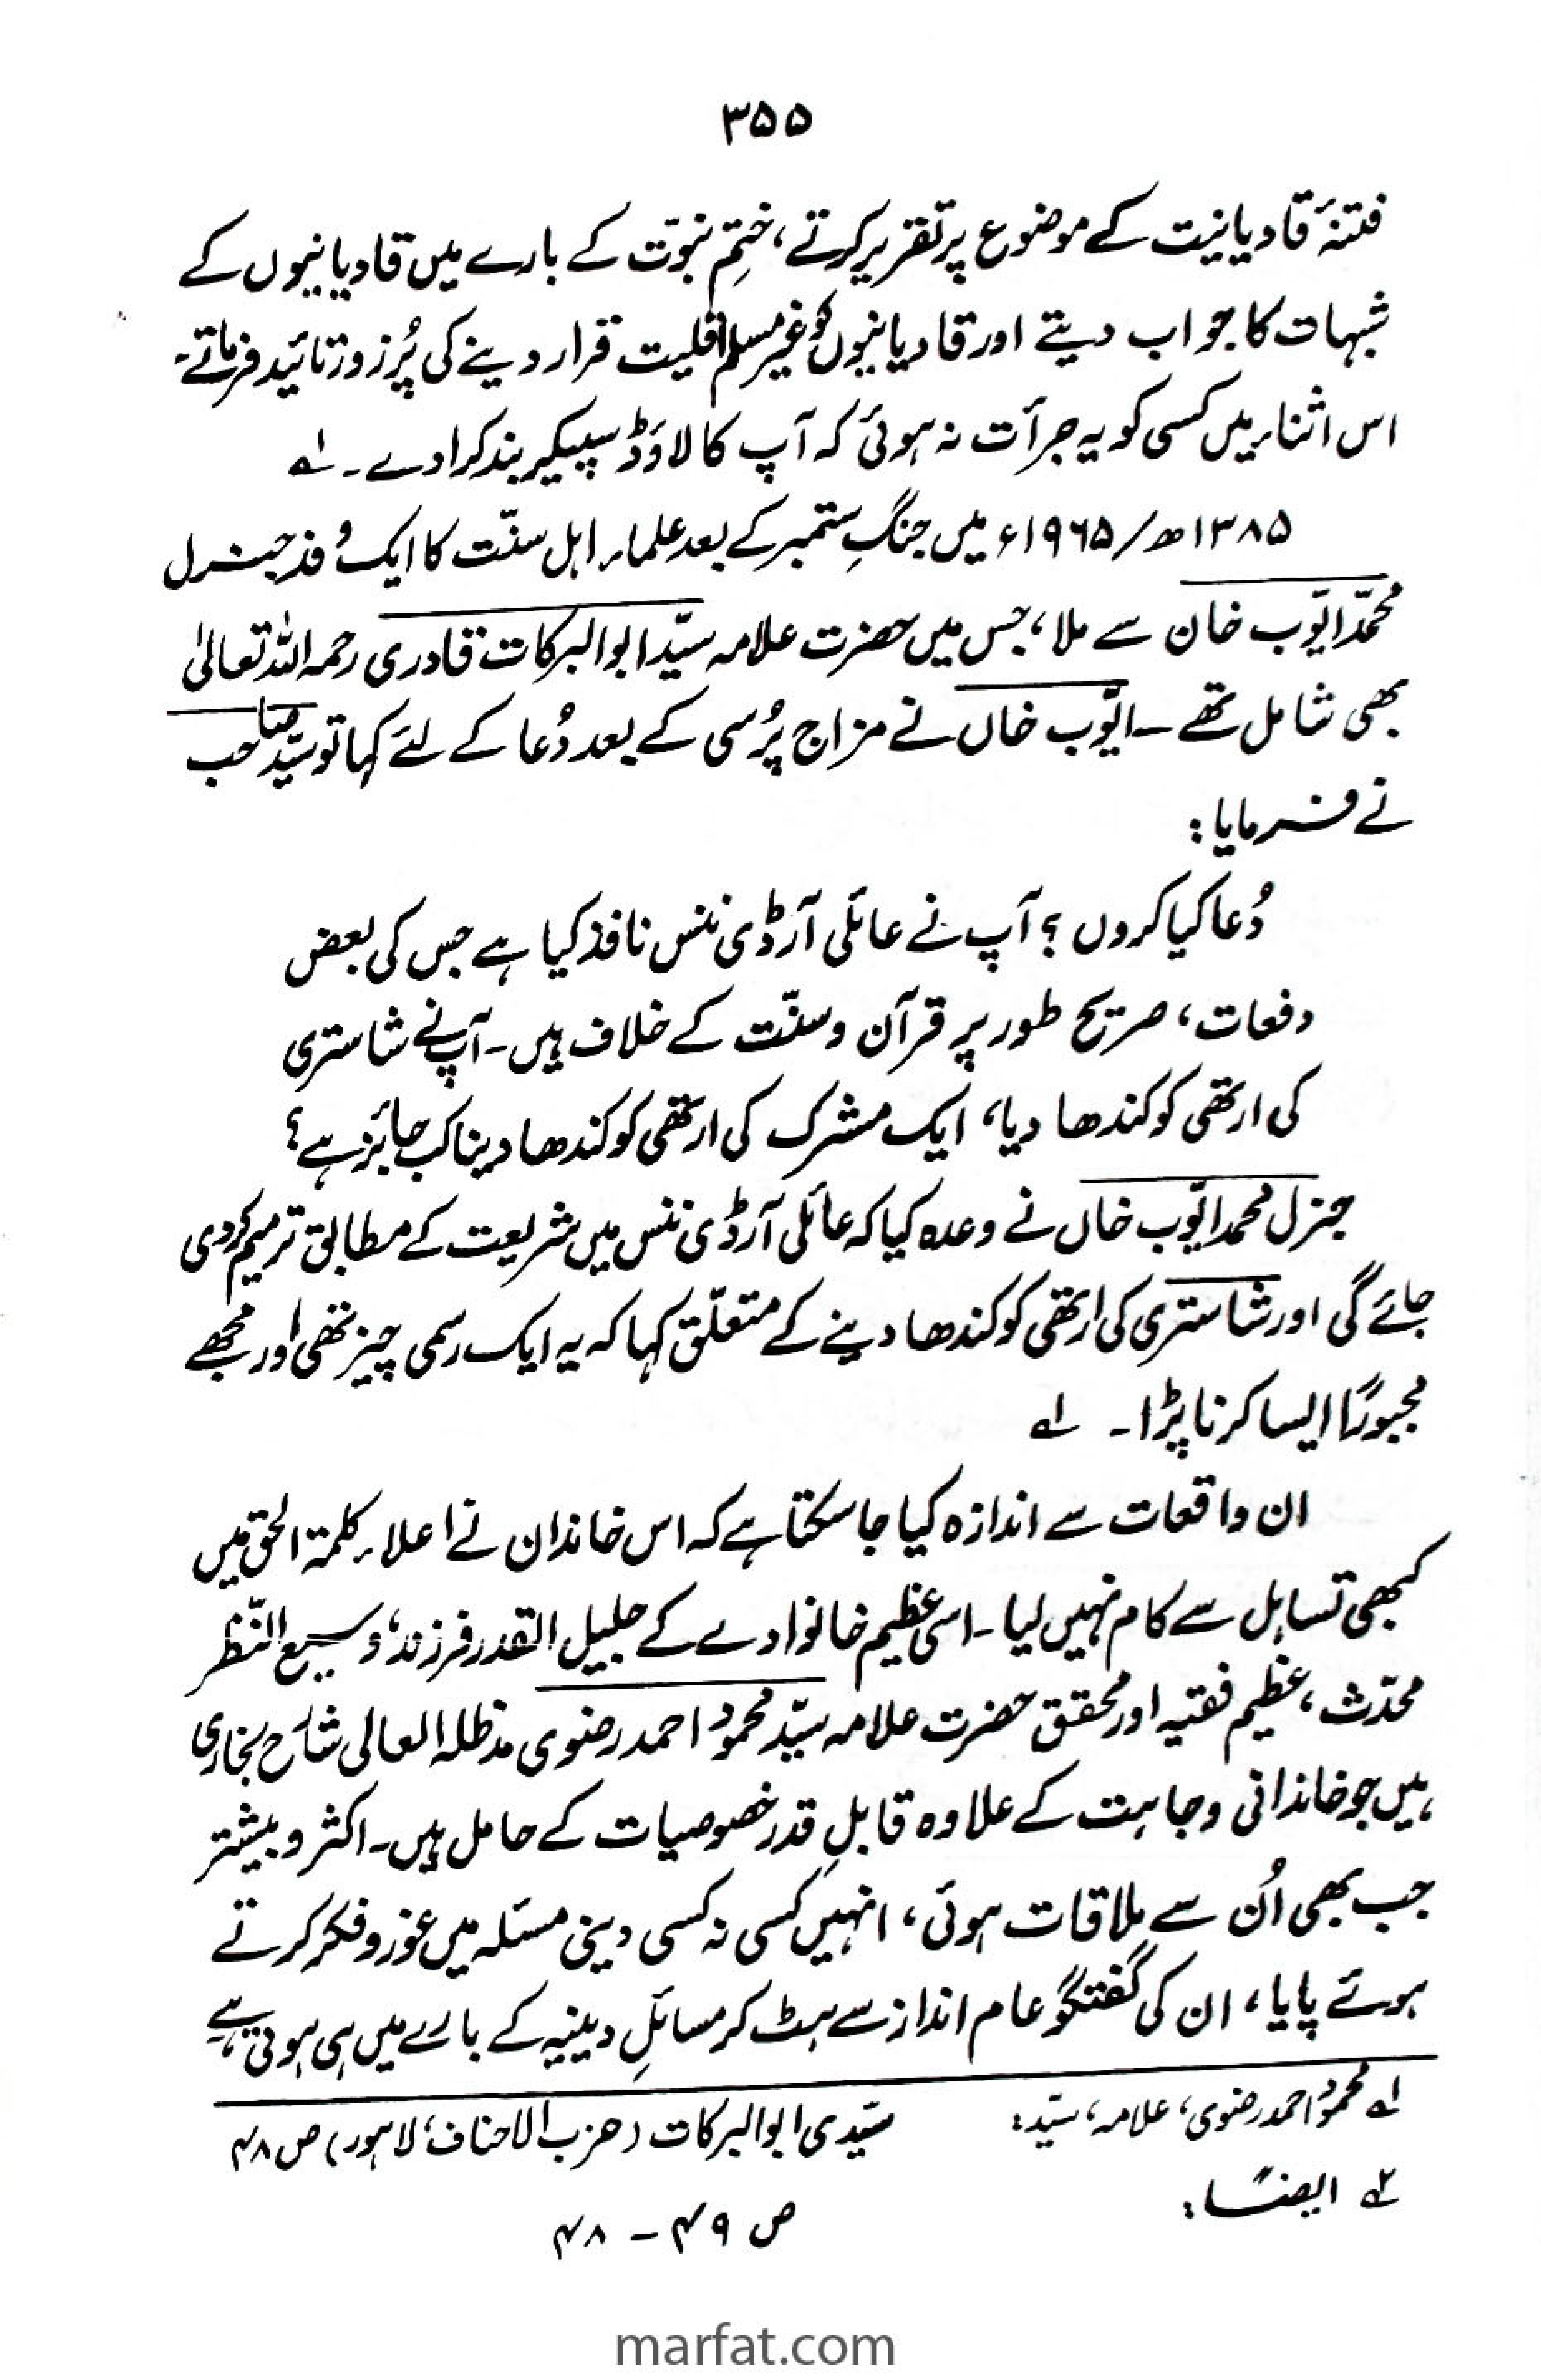 ۳۵۵
فتنۂ قادیانیت کے موضوع پر تقریر کرتے، ختمِ نبوّت کے بارے میں قادیانیوں کے
شبہات کا جواب دیتے اور قادیانیوں کو غیر مسلم اقلیت قرار دینے کی پُرزور تائید فرماتے۔
اس اثناء میں کسی کو یہ جرأت نہ ہوئی کہ آپ کا لاؤڈ سپیکر بند کرا دے۔ ۱ے
۱۳۸۵ھ/۱۹۶۵ء میں جنگِ ستمبر کے بعد علماء اہل سنّت کا ایک وُفد جنرل
محمّد ایّوب خان سے ملا، جس میں حضرت علامہ سیّد ابوالبرکات قادری رحمہ اللہ تعالیٰ
بھی شامل تھے ۔ ایّوب خاں نے مزاج پُرسی کے بعد دُعا کے لئے کہا تو سیّد صاحب
نے فرمایا :
دُعا کیا کروں ؟ آپ نے عائلی آرڈی ننس نافذ کیا ہے جس کی بعض
دفعات، صریح طور پر قرآن و سنّت کے خلاف ہیں۔ آپ نے شاستری
کی ارتھی کو کندھا دیا، ایک مشرک کی ارتھی کو کندھا دینا کب جائز ہے؟
جنرل محمد ایّوب خاں نے وعدہ کیا کہ عائلی آرڈی ننس میں شریعت کے مطابق ترمیم کر دی
جائے گی اور شاستری کی ارتھی کو کندھا دینے کے متعلّق کہا کہ یہ ایک رسمی چیز تھی اور مجھے
مجبورًا ایسا کرنا پڑا۔ ۱ے
ان واقعات سے اندازہ کیا جا سکتا ہے کہ اس خاندان نے اعلاء کلمۃ الحق میں
کبھی تساہل سے کام نہیں لیا ۔ اسی عظیم خانوادے کے جلیل القدر فرزند، وسیع النّظر
محدّث، عظیم فقیہ اور محقق حضرت علامہ سیّد محمود احمد رضوی مدظلہ العالی شارح بخاری
ہیں جو خاندانی وجاہت کے علاوہ قابلِ قدر خصوصیات کے حامل ہیں۔ اکثر و بیشتر
جب بھی اُن سے ملاقات ہوئی، انہیں کسی نہ کسی دینی مسئلہ میں غور و فکر کرتے
ہوئے پایا، ان کی گفتگو عام انداز سے ہٹ کر مسائلِ دینیہ کے بارے میں ہی ہوتی ہے
۱ے محمود احمد رضوی، علامہ، سیّد: سیّدی ابوالبرکات (حزب الاحناف، لاہور) ص ۴۸
۲ے ایضًا : ص ۴۹ - ۴۸
marfat.com